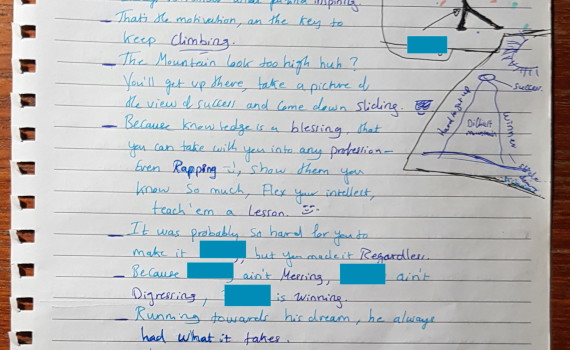 inspiring.
- That's the motivation, an the key to
keep Climbing.
- The Mountain look too high huh?
You'll get up there, take a picture of
the view of success and come down sliding.
- Because knowledge is a blessing, that
you can take with you into any profession-
Even Rapping :), show them you
know so much, Flex your intellect,
teach 'em a Lesson.
- It was probably so hard for you to
make it , but you made it Regardless.
- Because ain't Messing, ain't
Digressing, is winning.
- Running towards his dream, he always
had what it takes.
success
Mountain
winner